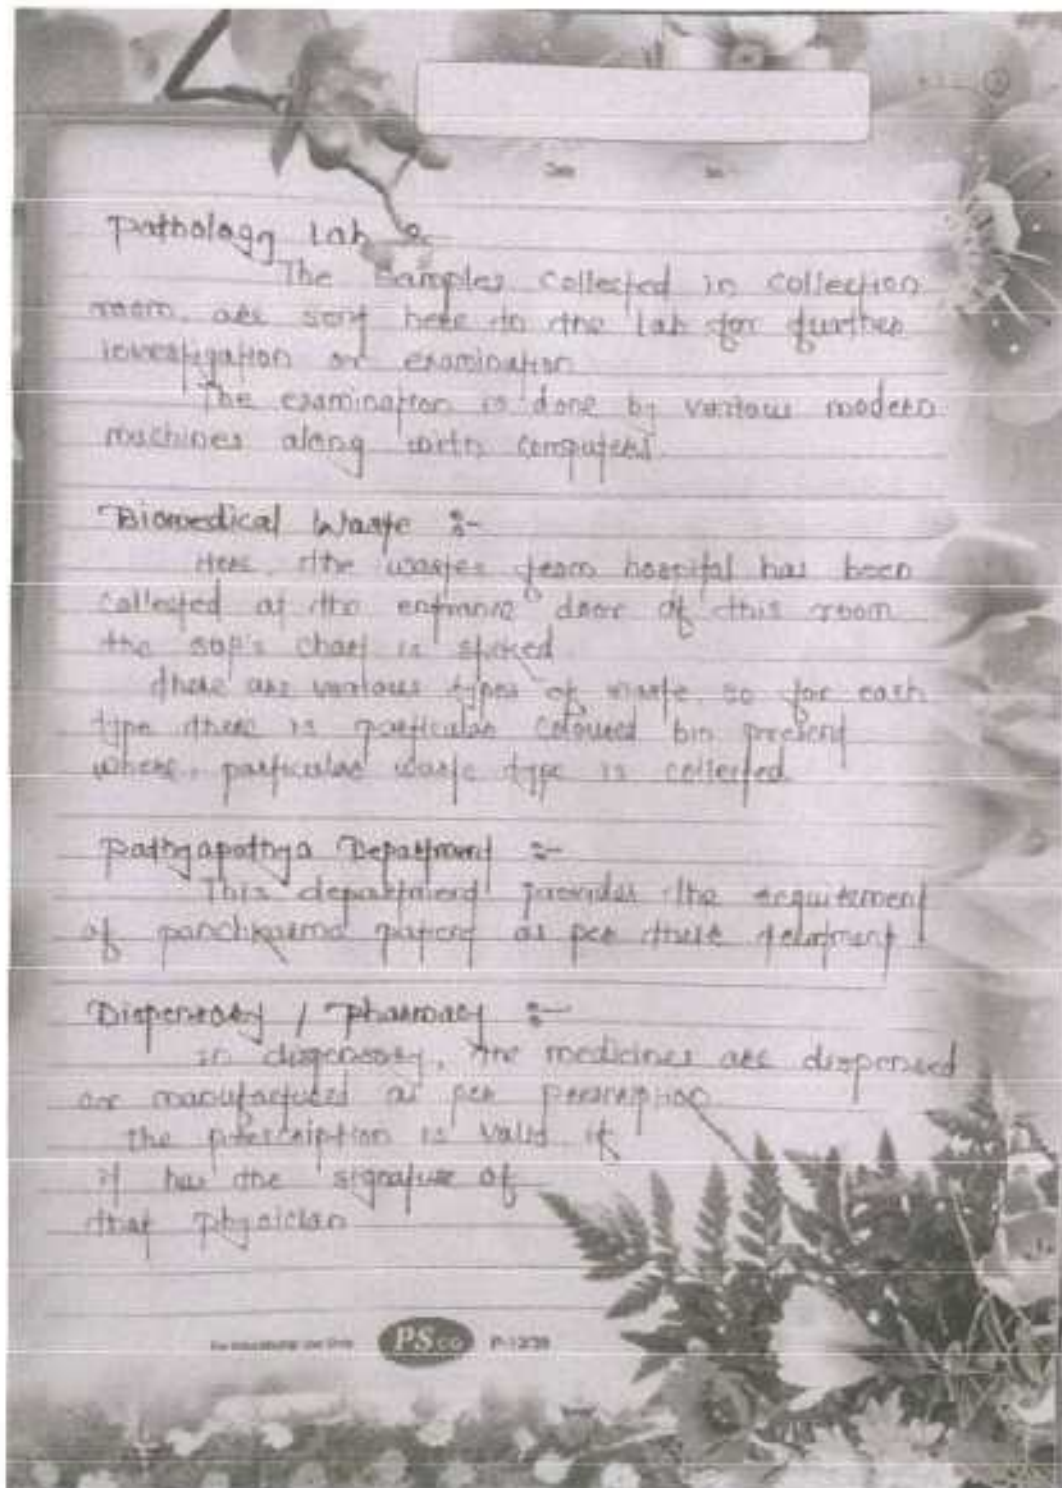 Pathology Lab :-
The Samples Collected in Collection
room, are sent here to the Lab for further
investigation or examination
The examination is done by various modern
machines along with Computers.
Biomedical Waste :-
Here, the wastes from hospital has been
Collected at the entrance door of this room
the sop's chart is sticked
there are various types of waste, so for each
type there is particular coloured bin present
where, particular waste type is collected.
Pathyapathya Department :-
This department provides the requirement
of panchkarma patient as per there treatment.
Dispensary / Pharmacy :-
In dispensary, the medicines are dispensed
or manufactured as per perscription
the prescription is valid if
it has the signature of
that physician
For Educational Use Only PSCO